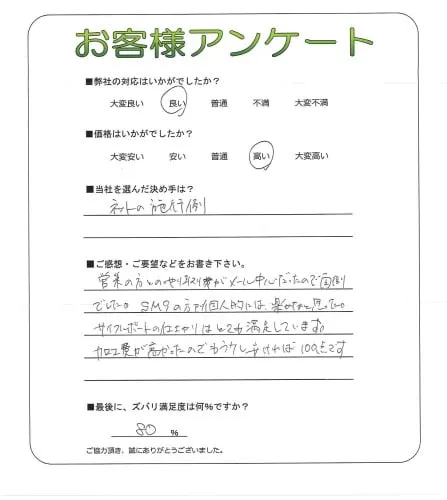 お客様アンケート
■弊社の対応はいかがでしたか？
大変良い 良い 普通 不満 大変不満
■価格はいかがでしたか？
大変安い 安い 普通 高い 大変高い
■当社を選んだ決め手は？
ネットの施行例
■ご感想・ご要望などをお書き下さい。
営業の方とのやり取りがメール中心だったので面倒
でした。SMSの方が個人的には、楽かなと思った。
サイクルポートの仕上がりはとても満足しています。
加工費が高かったのでもう少し安ければ100点です
■最後に、ズバリ満足度は何％ですか？
80 ％
ご協力頂き、誠にありがとうございました。